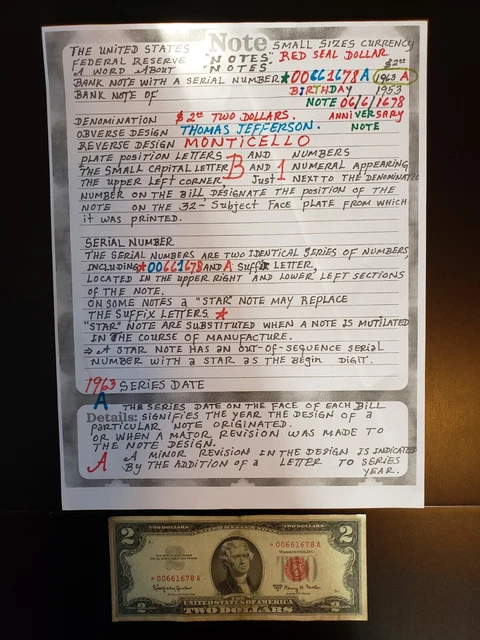 Note
SMALL SIZES CURRENCY
THE UNITED STATES
RED SEAL DOLLAR
FEDERAL RESERVE "NOTES"
$2.00
A WORD ABOUT "NOTES"
BANK NOTE WITH A SERIAL NUMBER ★00661678 A 1963 A
BANK NOTE OF BIRTHDAY 1953
NOTE 06/6/1678
DENOMINATION $2.00 TWO DOLLARS. ANNIVERSARY
OBVERSE DESIGN THOMAS JEFFERSON. NOTE
REVERSE DESIGN MONTICELLO
PLATE POSITION LETTERS AND NUMBERS
THE SMALL CAPITAL LETTER B AND 1 NUMERAL APPEARING
THE UPPER LEFT CORNER Just NEXT TO THE DENOMINATIO
NUMBER ON THE BILL DESIGNATE THE POSITION OF THE
NOTE ON THE 32- SUBJECT FACE PLATE FROM WHICH
it WAS PRINTED.
SERIAL NUMBER
THE SERIAL NUMBERS ARE TWO IDENTICAL SERIES OF NUMBERS,
INCLUDING ★00661678 AND A SUFFIX LETTER,
LOCATED IN THE UPPER RIGHT AND LOWER LEFT SECTIONS
OF THE NOTE.
ON SOME NOTES A "STAR" NOTE MAY REPLACE
THE SUFFIX LETTERS. ★
"STAR" NOTE ARE SUBSTITUTED WHEN A NOTE IS MUTILATED
IN THE COURSE OF MANUFACTURE.
⇒ A STAR NOTE HAS AN OUT-OF-SEQUENCE SERIAL
NUMBER WITH A STAR AS THE BEGIN DIGIT.
1963 SERIES DATE
A THE SERIES DATE ON THE FACE OF EACH BILL
Details: SIGNIFIES THE YEAR THE DESIGN OF A
PARTICULAR NOTE ORIGINATED.
OR WHEN A MAJOR REVISION WAS MADE TO
THE NOTE DESIGN.
A A MINOR REVISION IN THE DESIGN IS INDICATED
BY THE ADDITION OF A LETTER TO SERIES
YEAR.
TWO DOLLARS TWO DOLLARS
2 2
★ 00661678 A
WASHINGTON, D.C.
★ 00661678 A
THE
UNITED STATES OF AMERICA
TWO DOLLARS